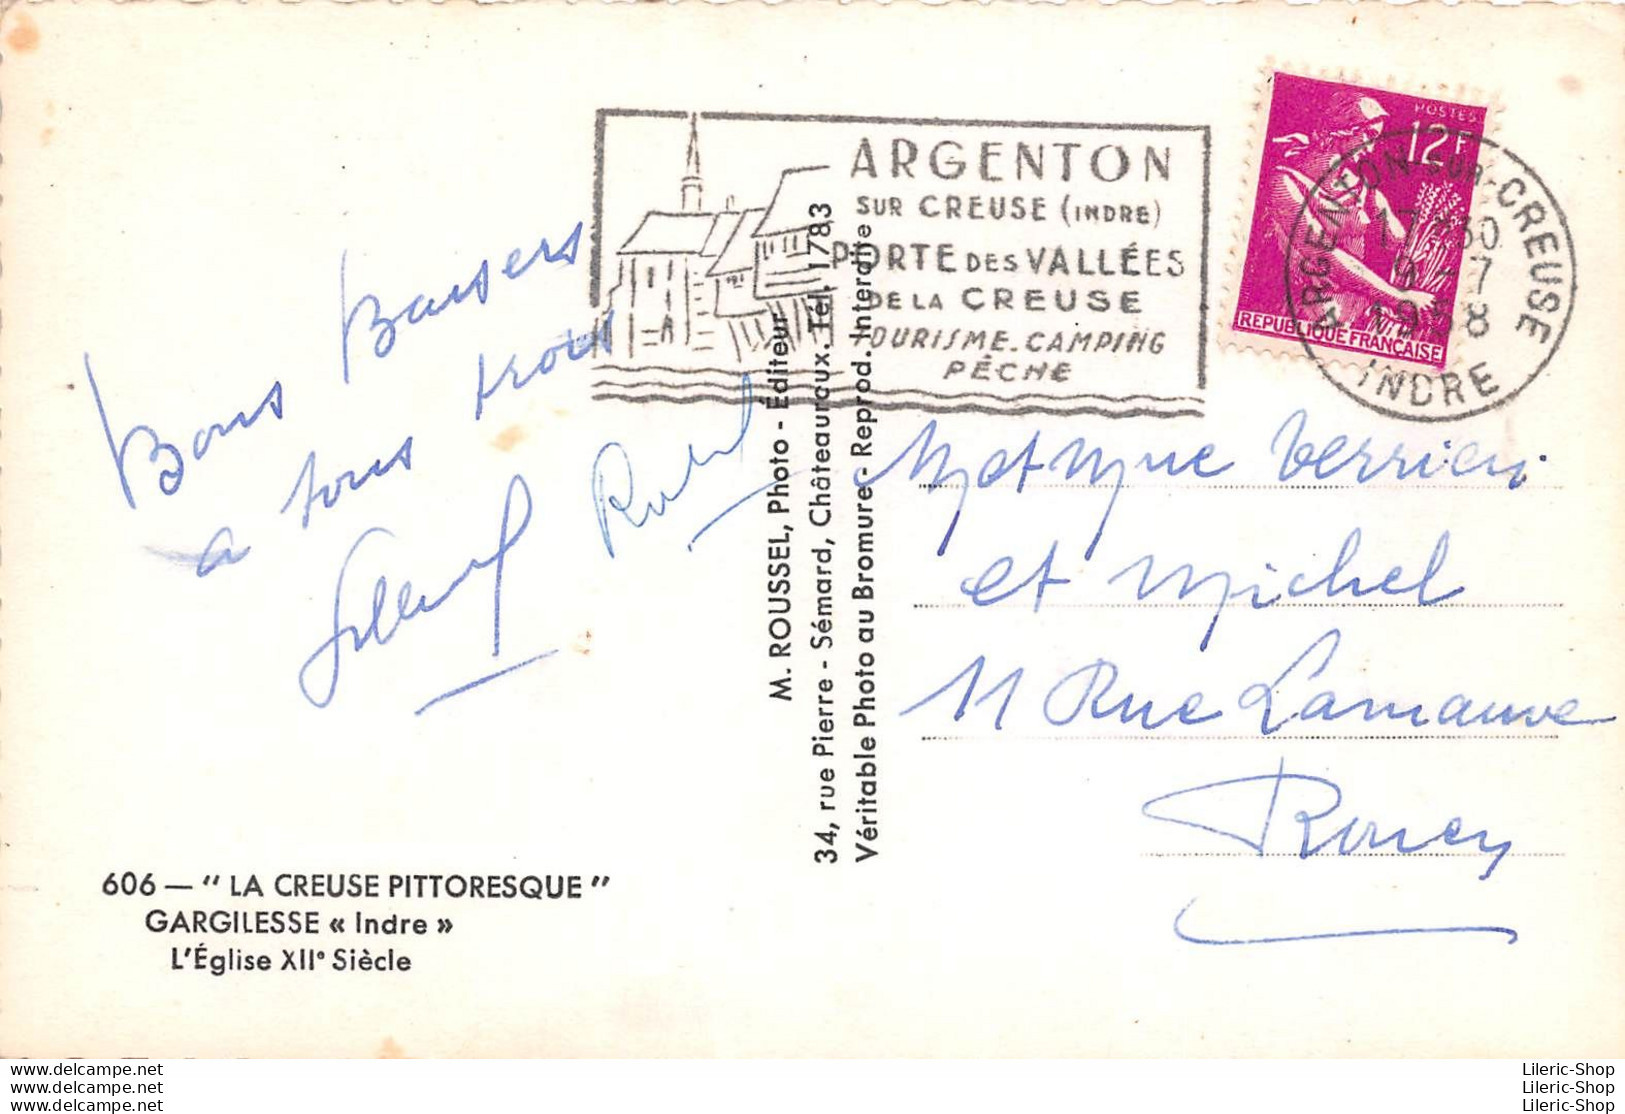 ARGENTON
SUR CREUSE (INDRE)
PORTE DES VALLÉES
DE LA CREUSE
TOURISME. CAMPING
PÊCHE
POSTES
12F
REPUBLIQUE FRANÇAISE
ARGENTON-SUR-CREUSE
17 30
9 - 7
1958
INDRE
Bons Baisers
a tous trois
Robert
M. ROUSSEL, Photo - Editeur
34, rue Pierre - Sémard, Châteauroux. Tél. 1783
Véritable Photo au Bromure - Reprod. Interdite
M et Mme Terrien
et Michel
11 Rue Lamauve
Rouen
606 — " LA CREUSE PITTORESQUE "
GARGILESSE « Indre »
L'Église XIIe Siècle
www.delcampe.net
www.delcampe.net
www.delcampe.net
Lileric-Shop
Lileric-Shop
Lileric-Shop